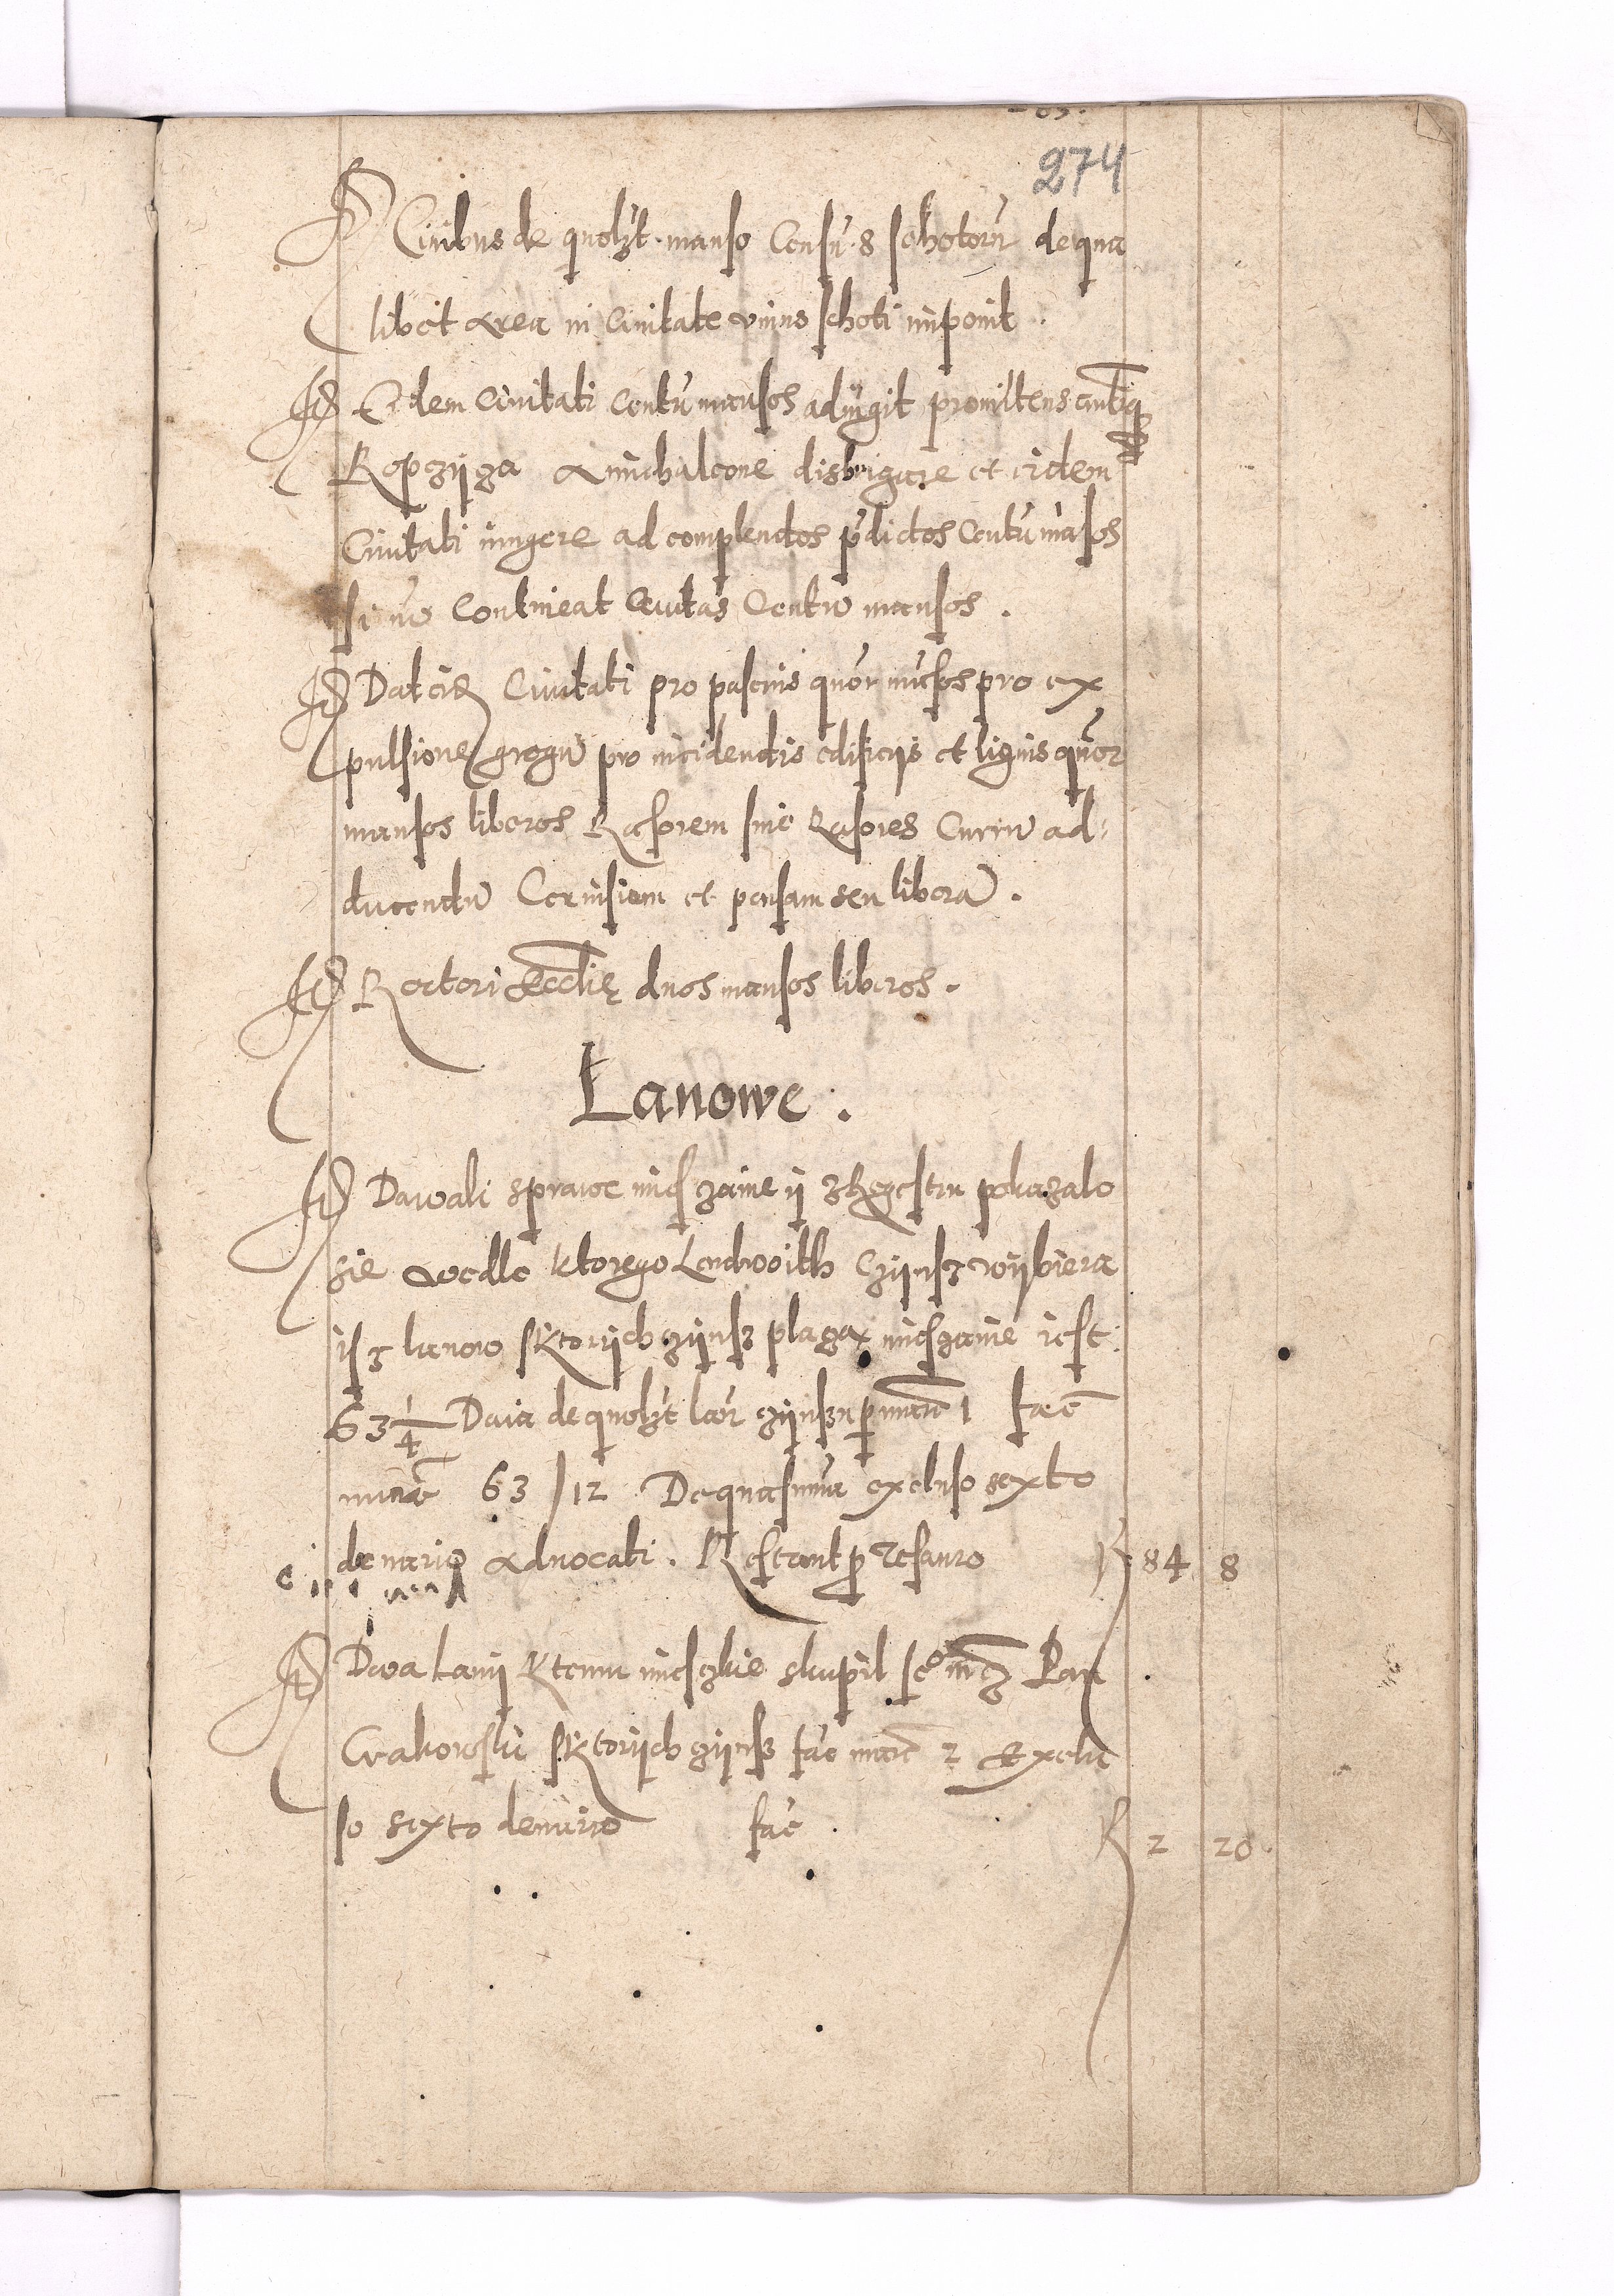 274
Ciuibus de quolȝt manso Censū 8 schotorū de qua
libet Area in Ciuitate vnius schoti imponit.
Eidem Ciuitati Centū mansos adiūgit promittens antiq
Ropczijcza disbrigare et eidem
Ciuitati iungere ad complendos p̄dictos Centū māsos
Contineat Ciuitas Centū mansos.
Dat eid Ciuitati pro pascuis quōr māsos pro ex
pulsione gregū pro incidendis edificijs et lignis quōr
mansos liberos Rasorem siue Rasores Currū ad-
ducendū Ceruisiam et pensam seu liberā.
Rectori Ecclię duos mansos liberos.
Łanowe.
Dawali sprawe miesczanie ij z Regestru pokazalo
sie wedle ktorego Lendwoith Czijnsz wijbiera
isz lanow sktorijch czijnsz placzą miesczanie iest
63 1/4 Daia de quolȝt lan̄ czijnszu p marc̄ 1 fac̄
marc̄ 63/12 De qua summa excluso sexto
denario Aduocati. Restant p Tesauro R 84 8
Dwa Łanij Ktemu miesczkie skupil Je° mcz Pan
Crakowski sktorijch czijnsz fac̄ marc̄ 2 Exclu
so sexto denario fac̄. R 2 20.